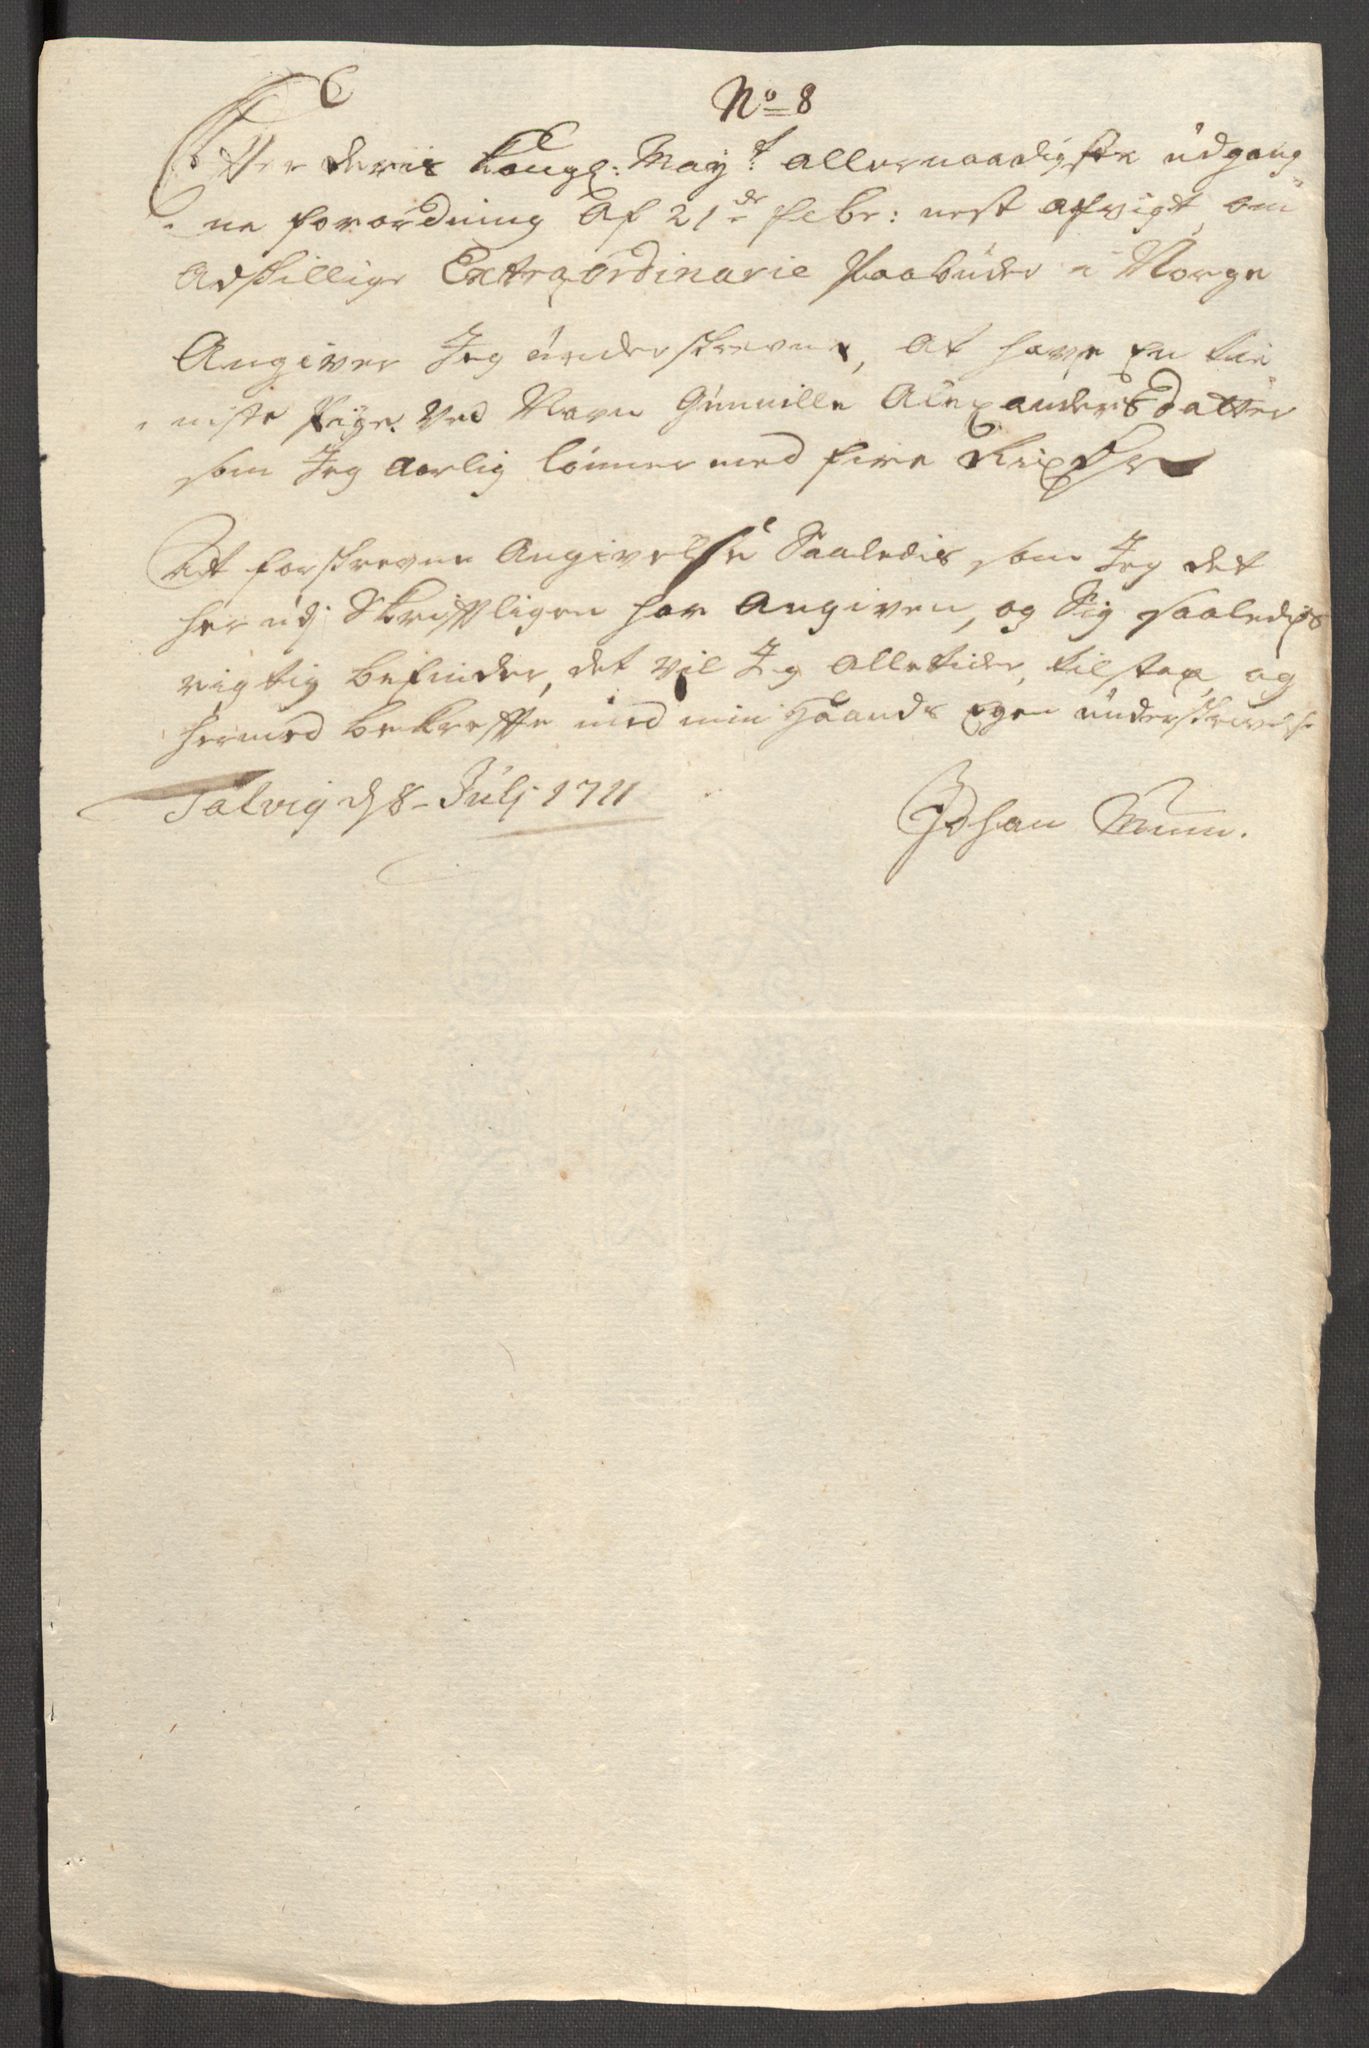 No 8
Efter deris Kongl: Mayt allernaadigste udgang
ne forordning Af 21de Febr: nest afvigt, om
Adskillige Extraordinarie Paabuder i Norge
Angiver Jeg underskrevne, at have En tie
niste Pige Ved Navn Gunnille Alexanders Datter
som Jeg Aarlig lønner med fire Rixdr
At forskrevne Angivelse Saaledis som Jeg det
her udj Skrifftligen har Angiven, og Sig saaledis
rigtig befinder, det vil Jeg Alletider tilstaa og
hermed bekreffte med min Haands Egen underskrivelse
Talvig d 8 Julj 1711
Johan Munn.